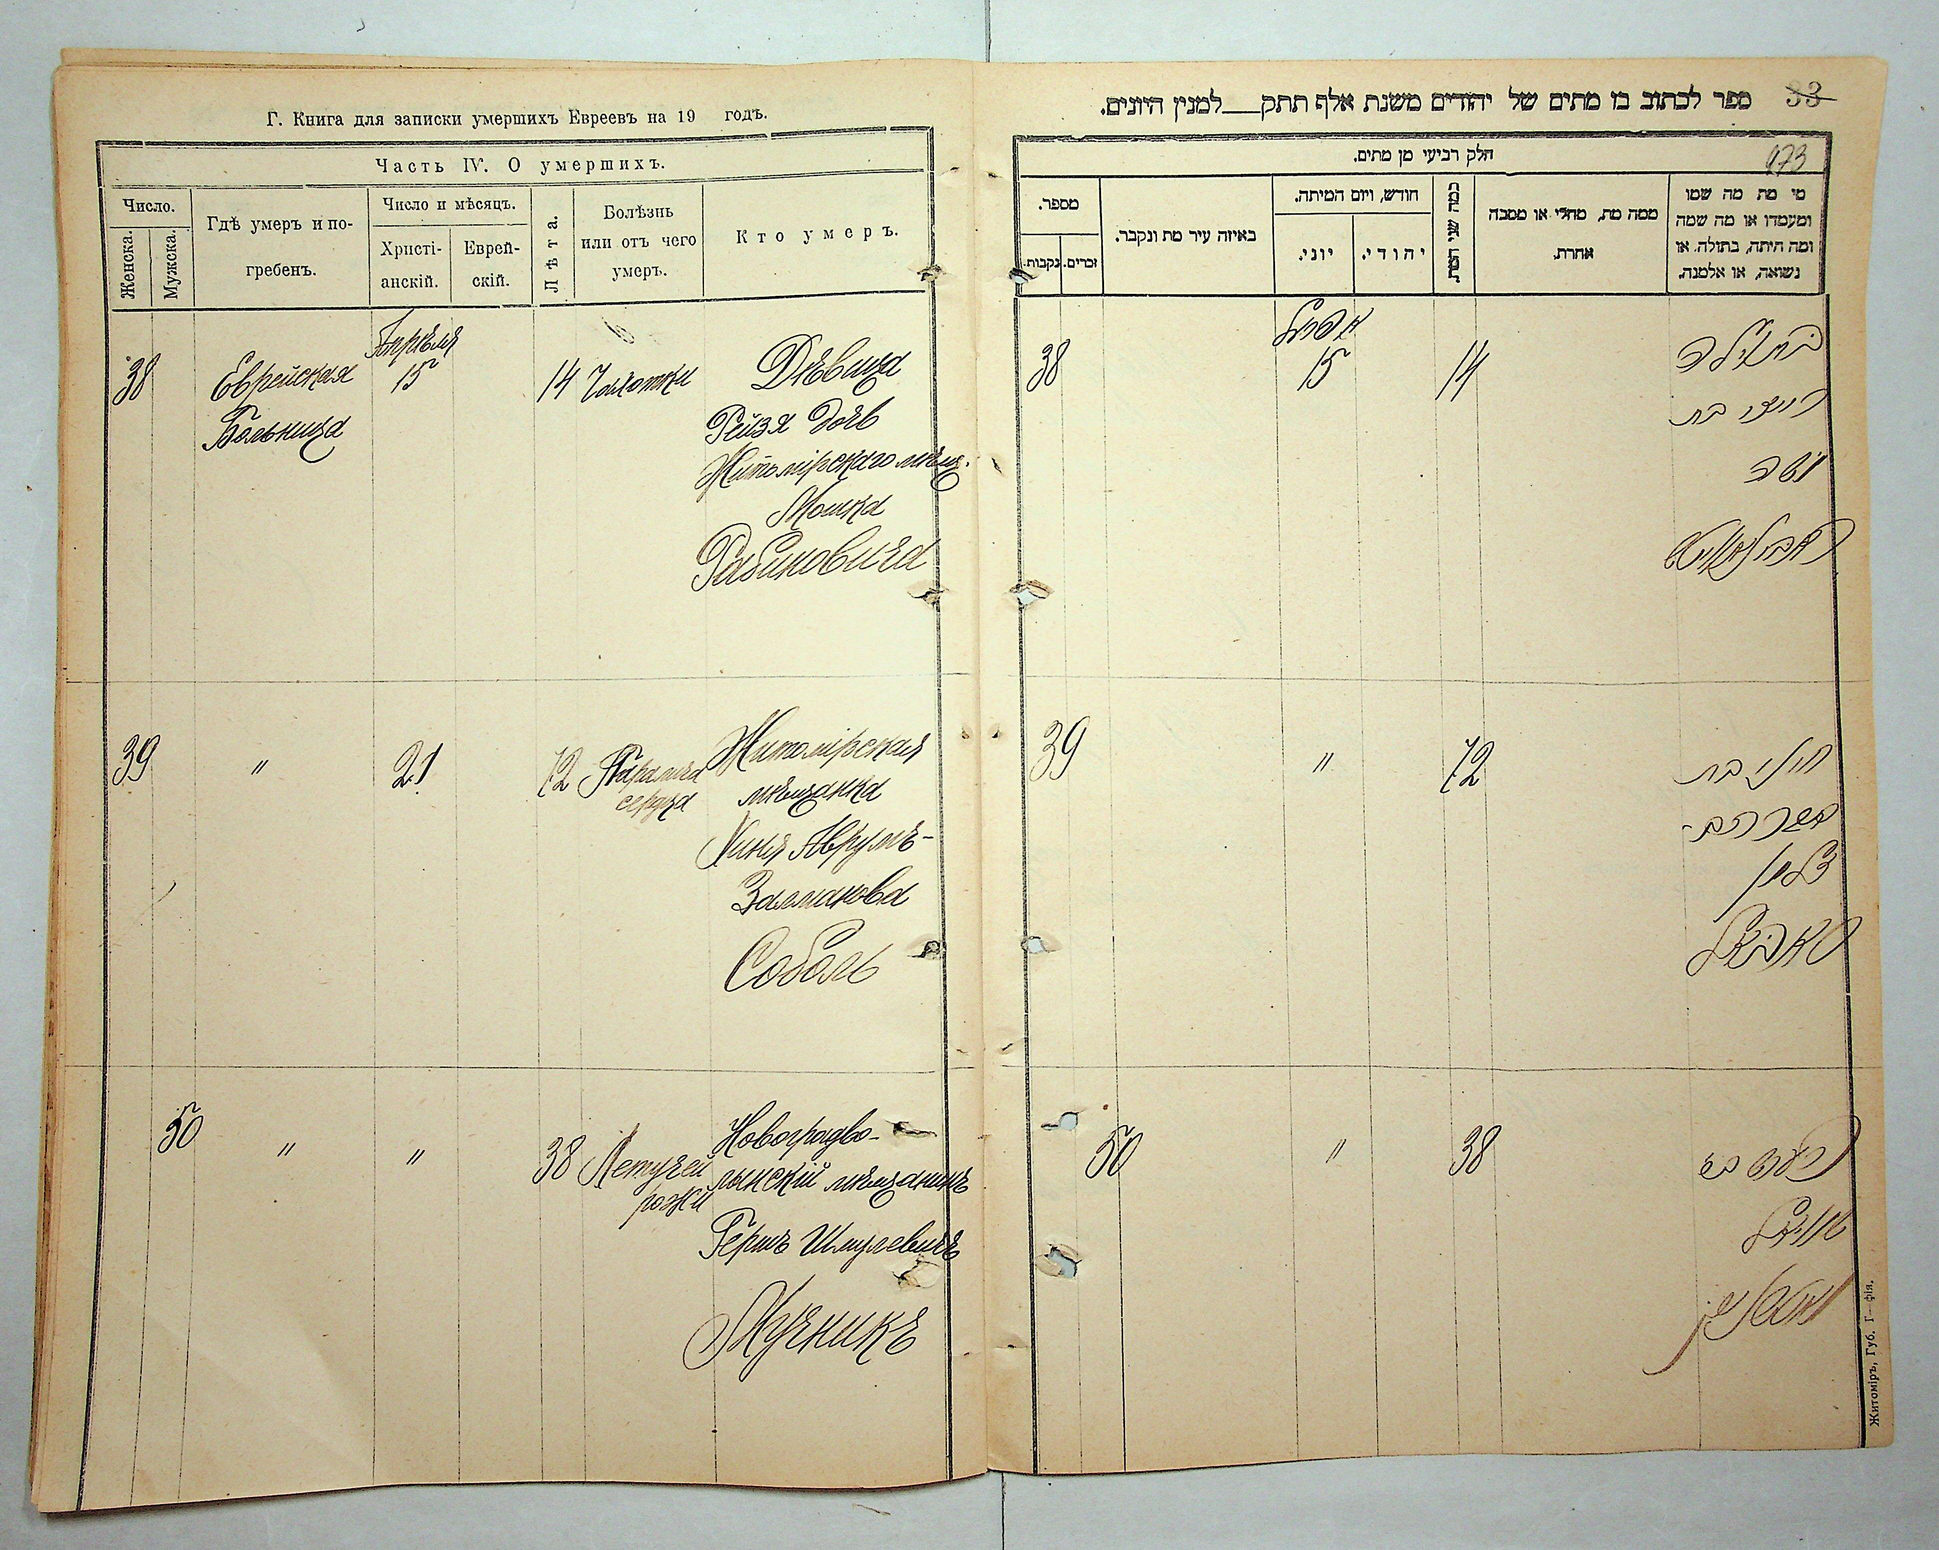 Г. Книга для записки умершихъ Евреевъ на 19 годъ.
Часть IV. О умершихъ.
Число.
Женска.
Мужска.
Гдѣ умеръ и по-
гребенъ.
Число и мѣсяцъ.
Христі-
анскій.
Еврей-
скій.
Лѣта.
Болѣзнь
или отъ чего
умеръ.
Кто умеръ.
38
Еврейская
Больница
Апрѣля
15
14
Чахотки
Дѣвица
Рейзя дочь
Житомірскаго мѣщ.
Мошка
Рабиновича
39
"
21
72
Паралича
сердца
Житомірская
мѣщанка
Хиня Аврумъ-
Залманова
Соболь
50
"
"
38
Летучей
рожи
Новоградво-
лынскій мѣщанинъ
Гершъ Шмулевичъ
Мучникъ
ספר לכתוב בו מתים של יהודים משנת אלף תתק למנין היונים.
33
חלק רביעי מן מתים.
173
מספר.
נקבות.
זכרים.
באיזה עיר מת ונקבר.
חודש, ויום המיתה.
יוני.
יהודי.
כמה שני המת.
ממה מת, מחלי או מסבה
אחרת.
מי מת מה שמו
ומעמדו או מה שמה
ומה היתה, בתולה. או
נשואה, או אלמנה.
38
אפריל
15
14
בתולה
רייזי בת
משה
ראבינאוויטש
39
"
72
חיני בת
אברהם
זלמן
סאבאל
50
"
38
הערש בן
שמואל
מוטשניק
Житоміръ, Губ. Т—фія.